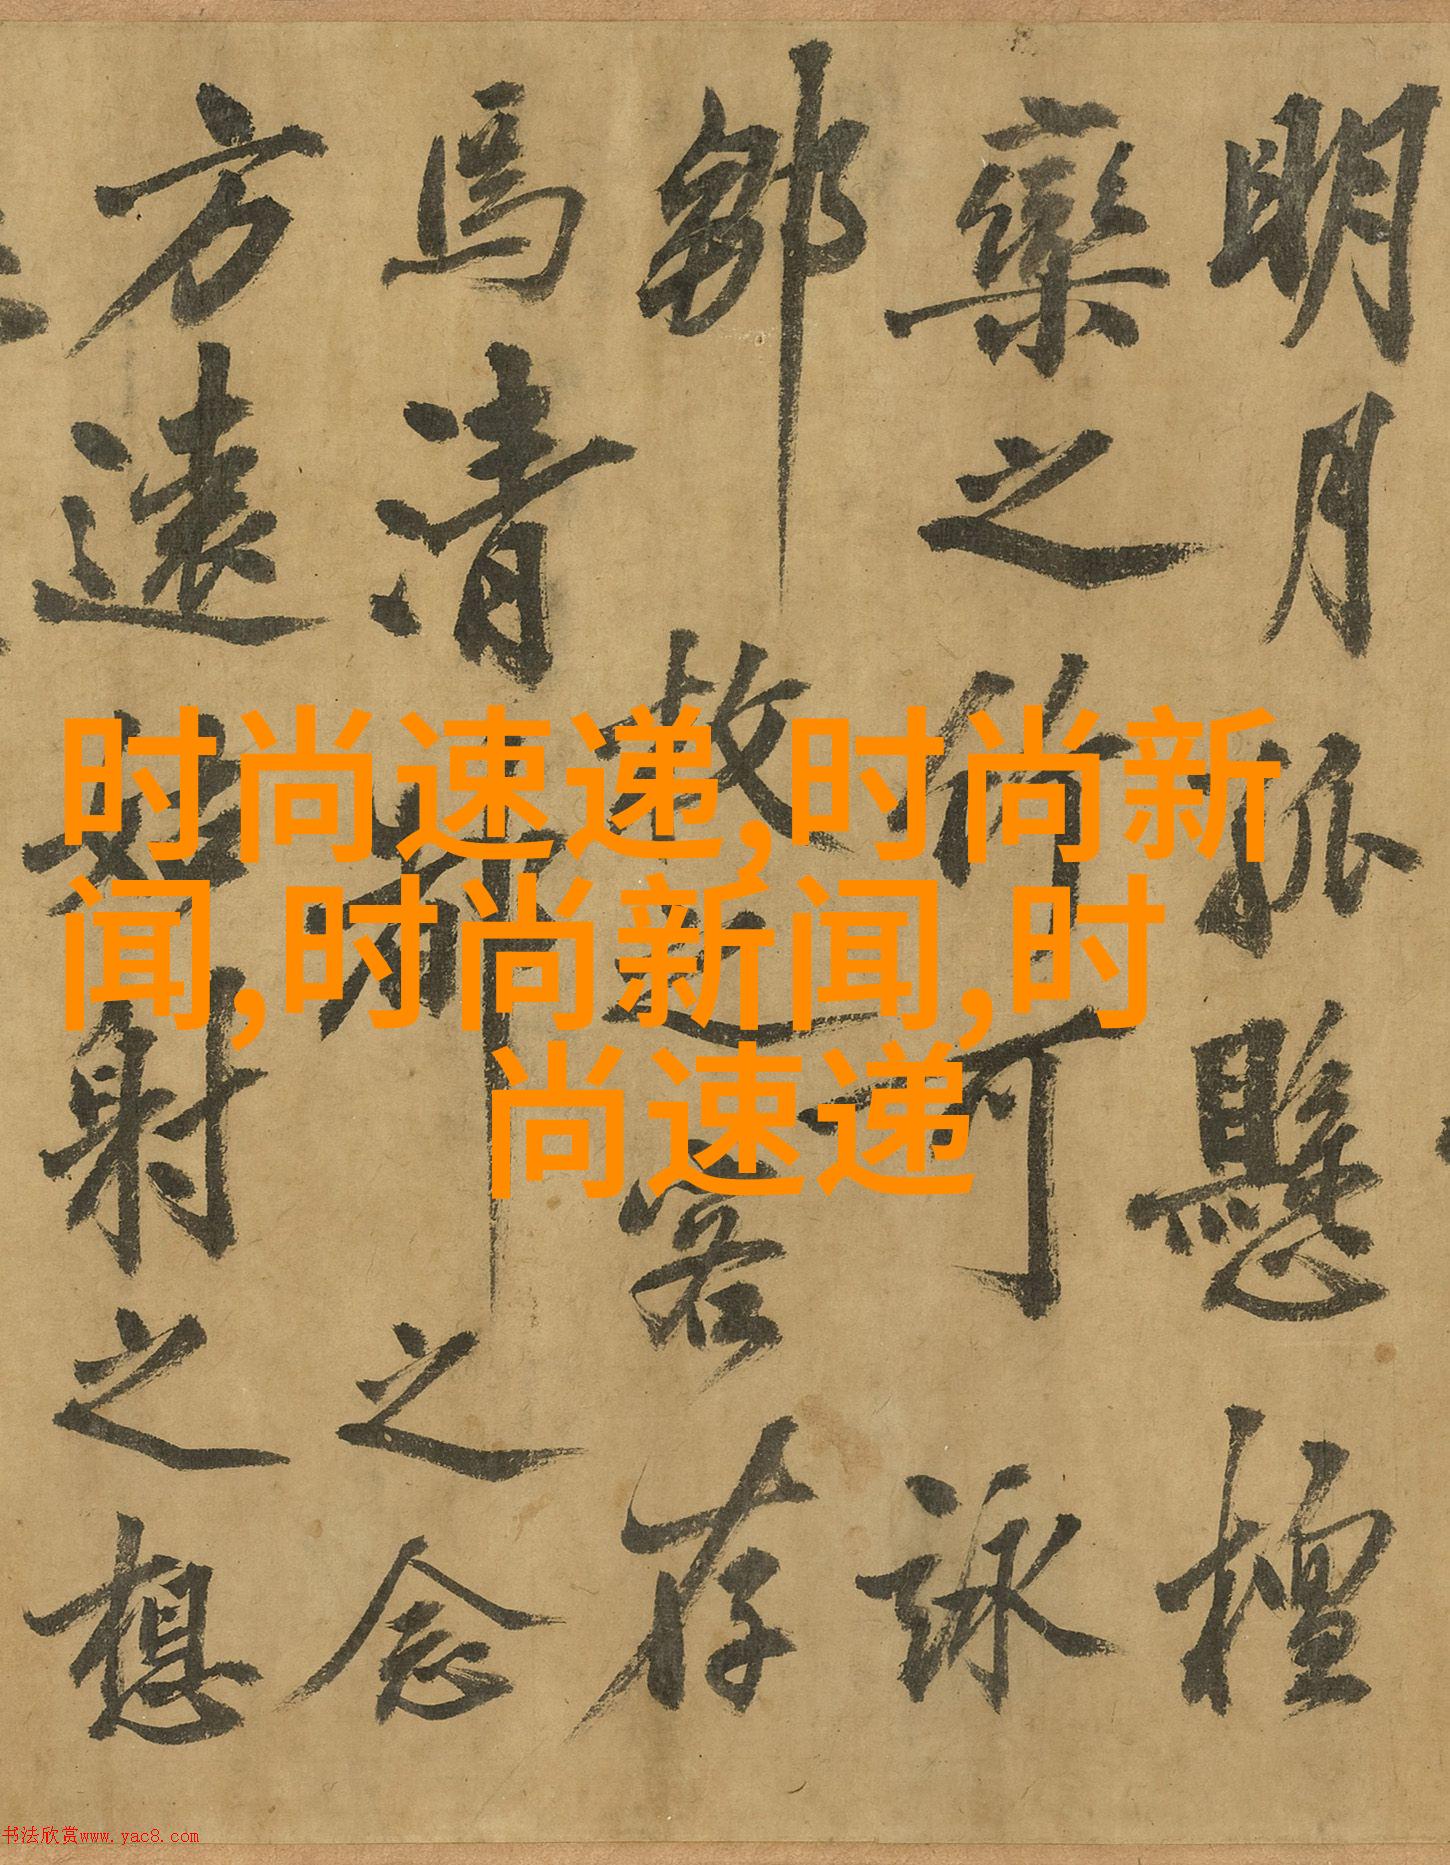 明月孤懸檀
欒之竹可詠
鄒枚之客存
焉清之念
方遠姑射之想
时尚速递,时尚新
闻,时尚新闻,时
尚速递
书法欣赏www.yac8.com